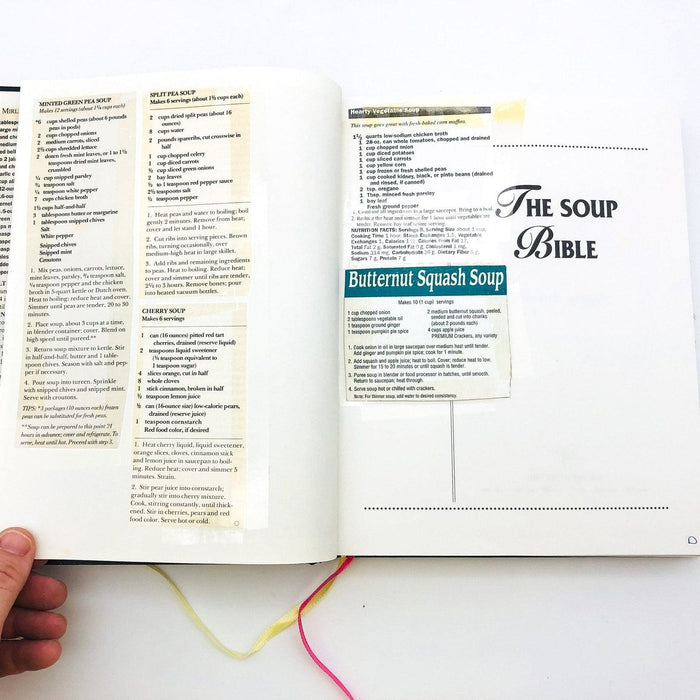 MINTED GREEN PEA SOUP
Makes 12 servings (about 1⅓ cups each)
*6 cups shelled peas (about 6 pounds
peas in pods)
2 cups chopped onions
2 medium carrots, sliced
2⅔ cups shredded lettuce
2 dozen fresh mint leaves, or 1 to 1½
teaspoons dried mint leaves,
crumbled
¼ cup snipped parsley
¾ teaspoon salt
¼ teaspoon white pepper
7 cups chicken broth
1½ cups half-and-half
3 tablespoons butter or margarine
1 tablespoon snipped chives
Salt
White pepper
Snipped chives
Snipped mint
Croutons
1. Mix peas, onions, carrots, lettuce,
mint leaves, parsley, ¾ teaspoon salt,
¼ teaspoon pepper and the chicken
broth in 5-quart kettle or Dutch oven.
Heat to boiling; reduce heat and cover.
Simmer until peas are tender, 20 to 30
minutes.
2. Place soup, about 3 cups at a time,
in blender container; cover. Blend on
high speed until pureed.**
3. Return soup mixture to kettle. Stir
in half-and-half, butter and 1 table-
spoon chives. Season with salt and pep-
per if necessary.
4. Pour soup into tureen. Sprinkle
with snipped chives and snipped mint.
Serve with croutons.
TIPS: *3 packages (10 ounces each) frozen
peas can be substituted for fresh peas.
**Soup can be prepared to this point 24
hours in advance; cover and refrigerate. To
serve, heat until hot. Proceed with step 3.
SPLIT PEA SOUP
Makes 6 servings (about 1⅓ cups each)
2 cups dried split peas (about 16
ounces)
8 cups water
2 pounds spareribs, cut crosswise in
half
1 cup chopped celery
1 cup diced carrots
½ cup sliced green onions
2 bay leaves
½ to 1 teaspoon red pepper sauce
2½ teaspoons salt
¼ teaspoon pepper
1. Heat peas and water to boiling; boil
gently 2 minutes. Remove from heat;
cover and let stand 1 hour.
2. Cut ribs into serving pieces. Brown
ribs, turning occasionally, over
medium-high heat in large skillet.
3. Add ribs and remaining ingredients
to peas. Heat to boiling. Reduce heat;
cover and simmer until ribs are tender,
2½ to 3 hours. Remove bones; pour
into heated vacuum bottles.
CHERRY SOUP
Makes 6 servings
1 can (16 ounces) pitted red tart
cherries, drained (reserve liquid)
2 teaspoons liquid sweetener
(⅓ teaspoon equivalent to
1 teaspoon sugar)
4 slices orange, cut in half
8 whole cloves
1 stick cinnamon, broken in half
½ teaspoon lemon juice
½ can (16-ounce size) low-calorie pears,
drained (reserve juice)
1 teaspoon cornstarch
Red food color, if desired
1. Heat cherry liquid, liquid sweetener,
orange slices, cloves, cinnamon stick
and lemon juice in saucepan to boil-
ing. Reduce heat; cover and simmer 5
minutes. Strain.
2. Stir pear juice into cornstarch;
gradually stir into cherry mixture.
Cook, stirring constantly, until thick-
ened. Stir in cherries, pears and red
food color. Serve hot or cold.
Hearty Vegetable Soup
This soup goes great with fresh-baked corn muffins.
1½ quarts low-sodium chicken broth
1 28-oz. can whole tomatoes, chopped and drained
1 cup chopped onion
1 cup diced potatoes
1 cup sliced carrots
1 cup yellow corn
1 cup frozen or fresh shelled peas
1 cup cooked kidney, black, or pinto beans (drained
and rinsed, if canned)
2 tsp. oregano
1 Tbsp. minced fresh parsley
1 bay leaf
Fresh ground pepper
1. Combine all ingredients in a large saucepot. Bring to a boil.
2. Reduce the heat and simmer for 1 hour until vegetables are
tender. Remove bay leaf before serving.
NUTRITION FACTS: Servings 8, Serving Size about 1 cup,
Cooking Time 1 hour, Starch Exchanges 1.5, Vegetable
Exchanges 1, Calories Calories From Fat 17,
Total Fat 2 g, Saturated Fat Cholesterol 1 mg,
Sodium 314 mg, Carbohydrate 29 g, Dietary Fiber
Sugars 7 g, Protein 7 g
Butternut Squash Soup
Makes 10 (1 cup) servings
1 cup chopped onion
2 tablespoons vegetable oil
1 teaspoon ground ginger
1 teaspoon pumpkin pie spice
2 medium butternut squash, peeled,
seeded and cut into chunks
(about 2 pounds each)
4 cups apple juice
PREMIUM Crackers, any variety
1. Cook onion in oil in large saucepan over medium heat until tender.
Add ginger and pumpkin pie spice; cook for 1 minute.
2. Add squash and apple juice; heat to boil. Cover; reduce heat to low.
Simmer for 15 to 20 minutes or until squash is tender.
3. Puree soup in blender or food processor in batches, until smooth.
Return to saucepan; heat through.
4. Serve soup hot or chilled with crackers.
Note: For thinner soup, add water to desired consistency.
THE SOUP
BIBLE